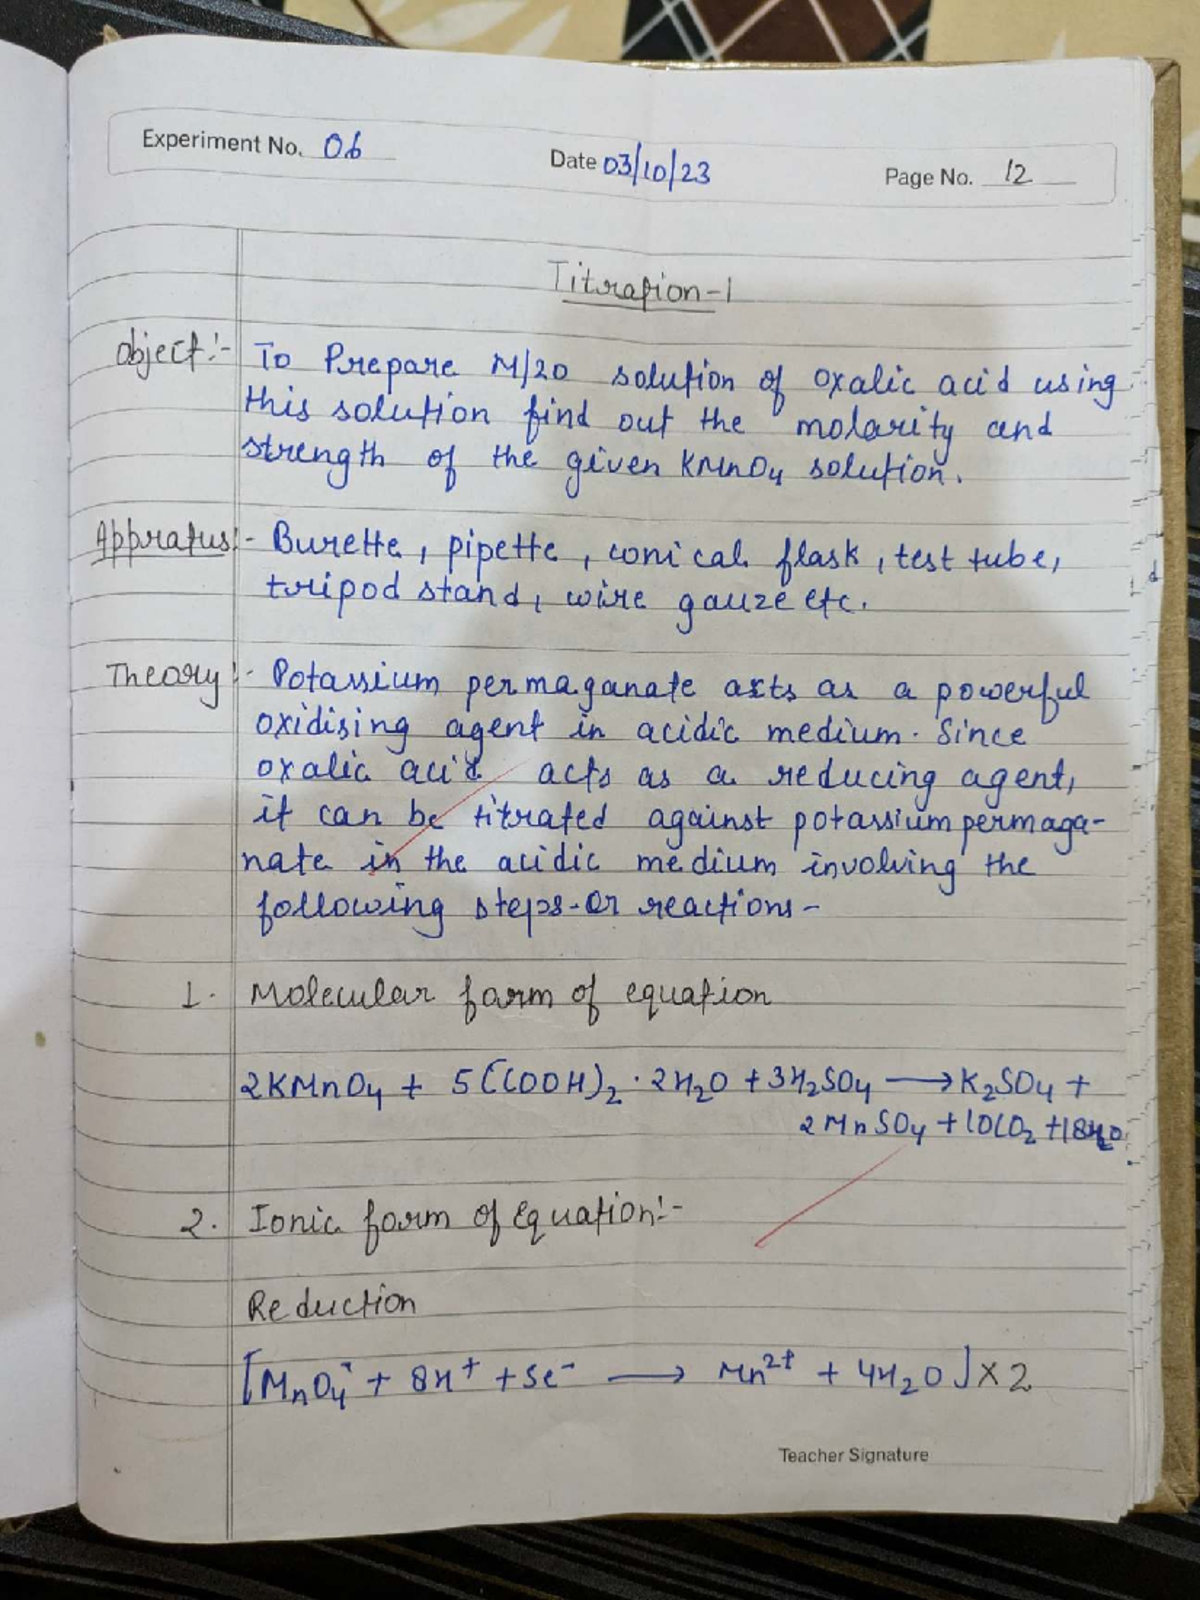 Experiment No. 06 Date 03/10/23 Page No. 12
Titration-1
Object:- To Prepare M/20 solution of oxalic acid using
this solution find out the molarity and
strength of the given KMnO₄ solution.
Appratus:- Burette, pipette, conical flask, test tube,
tripod stand, wire gauze etc.
Theory:- Potassium permaganate acts as a powerful
oxidising agent in acidic medium. Since
oxalic acid acts as a reducing agent,
it can be titrated against potassium permaga-
nate in the acidic medium involving the
following steps-or reactions-
1. Molecular farm of equation
2KMnO₄ + 5(COOH)₂·2H₂O + 3H₂SO₄ ⟶ K₂SO₄ +
2MnSO₄ + 10CO₂ + 18H₂O
2. Ionic farm of equation:-
Reduction
[MnO₄⁻ + 8H⁺ + 5e⁻ ⟶ Mn²⁺ + 4H₂O] × 2
Teacher Signature